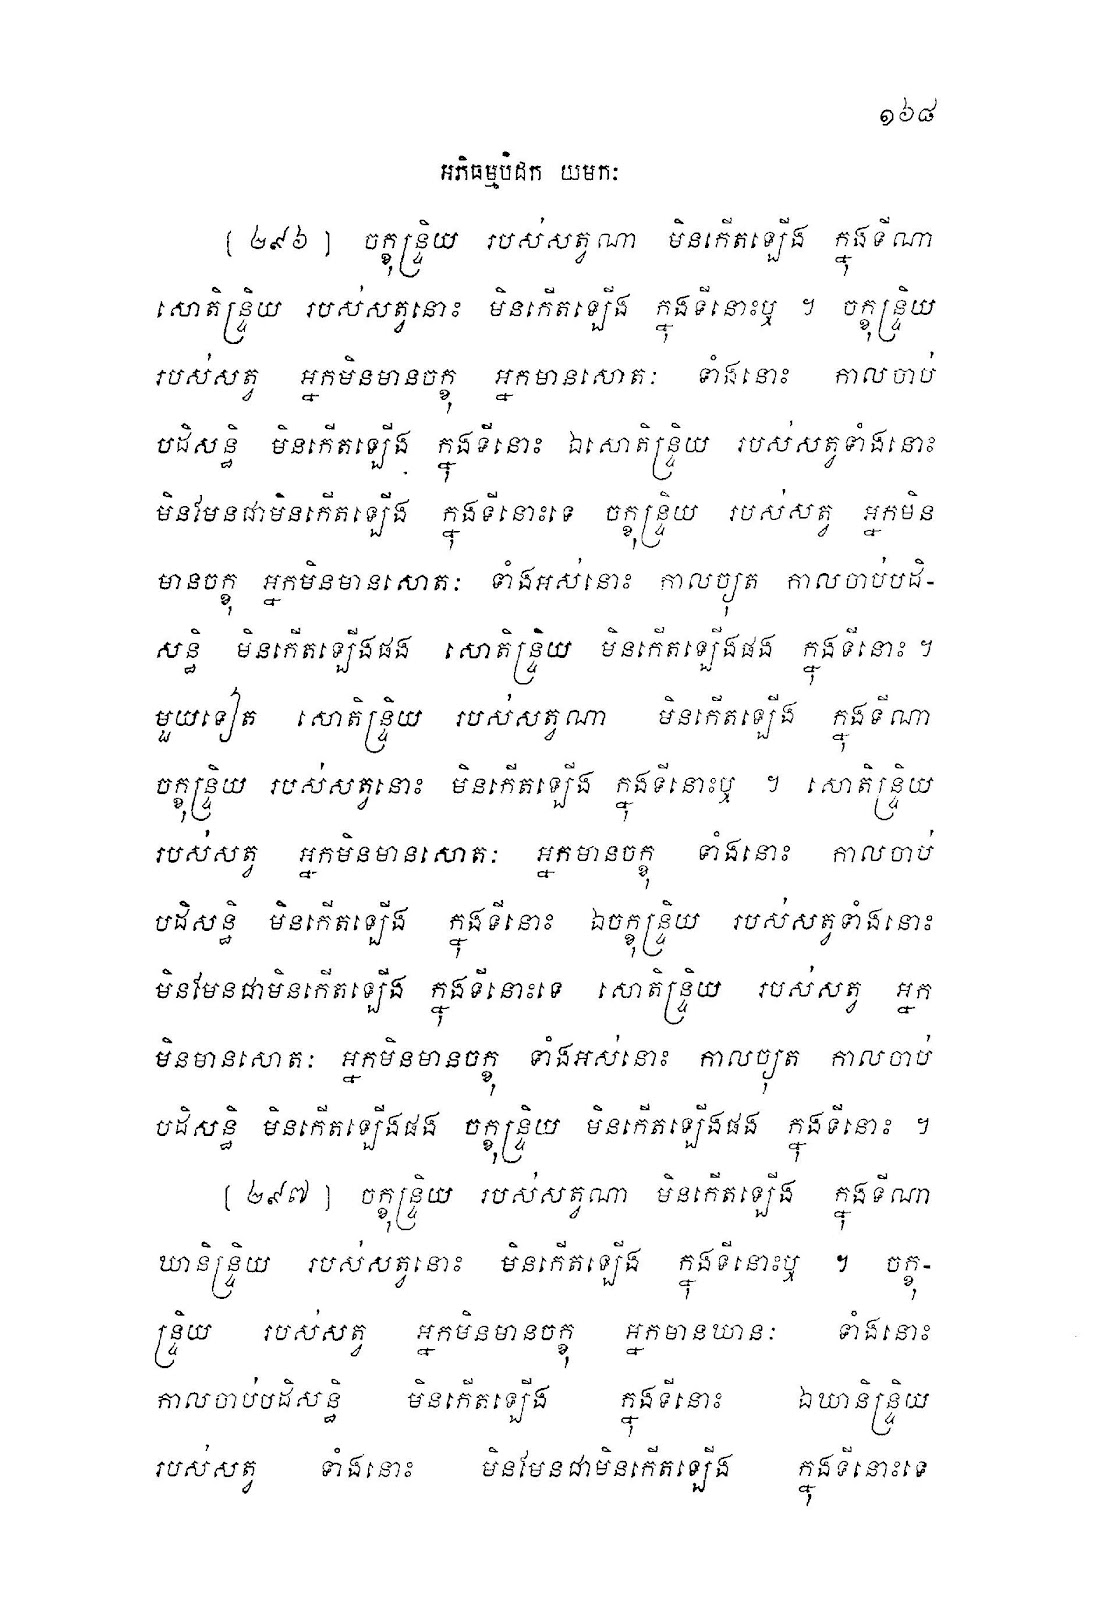 ១៦៨
អភិធម្មបិដក យមកៈ
[ ២៩៦ ] ចក្ខុន្ទ្រិយ របស់សត្វណា មិនកើតឡើង ក្នុងទីណា
សោតិន្ទ្រិយ របស់សត្វនោះ មិនកើតឡើង ក្នុងទីនោះឬ ។ ចក្ខុន្ទ្រិយ
របស់សត្វ អ្នកមិនមានចក្ខុ អ្នកមានសោតៈ ទាំងនោះ កាលចាប់
បដិសន្ធិ មិនកើតឡើង ក្នុងទីនោះ ឯសោតិន្ទ្រិយ របស់សត្វទាំងនោះ
មិនមែនជាមិនកើតឡើង ក្នុងទីនោះទេ ចក្ខុន្ទ្រិយ របស់សត្វ អ្នកមិន
មានចក្ខុ អ្នកមិនមានសោតៈ ទាំងអស់នោះ កាលច្យុត កាលចាប់បដិ-
សន្ធិ មិនកើតឡើងផង សោតិន្ទ្រិយ មិនកើតឡើងផង ក្នុងទីនោះ ។
មួយទៀត សោតិន្ទ្រិយ របស់សត្វណា មិនកើតឡើង ក្នុងទីណា
ចក្ខុន្ទ្រិយ របស់សត្វនោះ មិនកើតឡើង ក្នុងទីនោះឬ ។ សោតិន្ទ្រិយ
របស់សត្វ អ្នកមិនមានសោតៈ អ្នកមានចក្ខុ ទាំងនោះ កាលចាប់
បដិសន្ធិ មិនកើតឡើង ក្នុងទីនោះ ឯចក្ខុន្ទ្រិយ របស់សត្វទាំងនោះ
មិនមែនជាមិនកើតឡើង ក្នុងទីនោះទេ សោតិន្ទ្រិយ របស់សត្វ អ្នក
មិនមានសោតៈ អ្នកមិនមានចក្ខុ ទាំងអស់នោះ កាលច្យុត កាលចាប់
បដិសន្ធិ មិនកើតឡើងផង ចក្ខុន្ទ្រិយ មិនកើតឡើងផង ក្នុងទីនោះ ។
[ ២៩៧ ] ចក្ខុន្ទ្រិយ របស់សត្វណា មិនកើតឡើង ក្នុងទីណា
ឃានិន្ទ្រិយ របស់សត្វនោះ មិនកើតឡើង ក្នុងទីនោះឬ ។ ចក្ខុ-
ន្ទ្រិយ របស់សត្វ អ្នកមិនមានចក្ខុ អ្នកមានឃានៈ ទាំងនោះ
កាលចាប់បដិសន្ធិ មិនកើតឡើង ក្នុងទីនោះ ឯឃានិន្ទ្រិយ
របស់សត្វ ទាំងនោះ មិនមែនជាមិនកើតឡើង ក្នុងទីនោះទេ